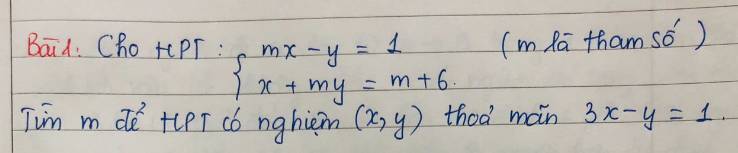 Bài 1: Cho HPT: { mx - y = 1 (m là tham số)
x + my = m + 6.
Tìm m để HPT có nghiệm (x, y) thoả mãn 3x - y = 1.